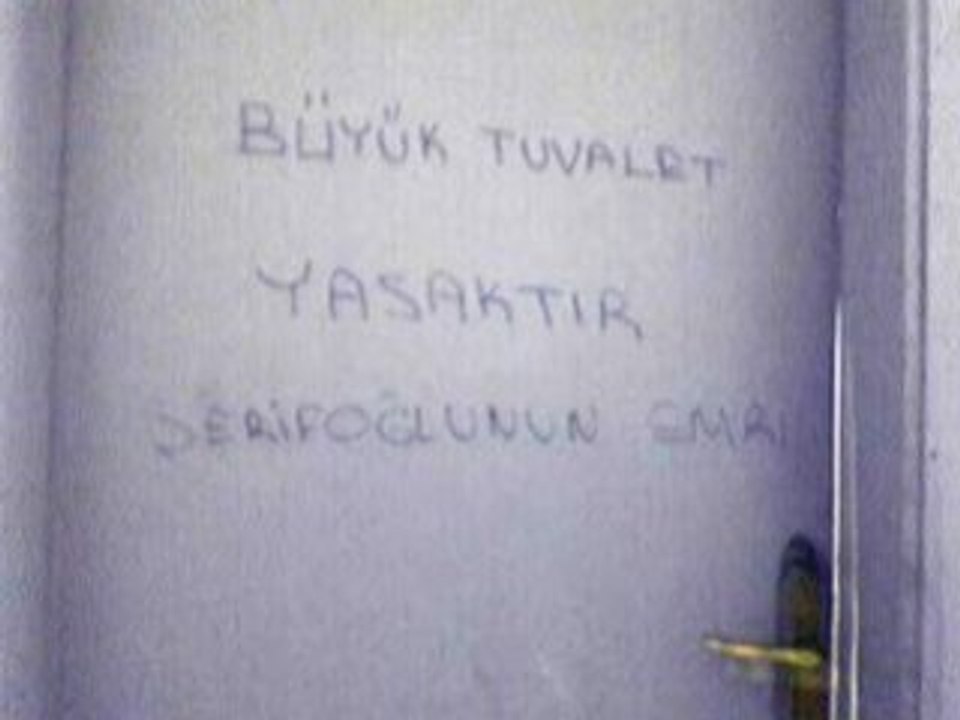 BÜYÜK TUVALET
YASAKTIR
ŞERİFOĞLUNUN EMRİ